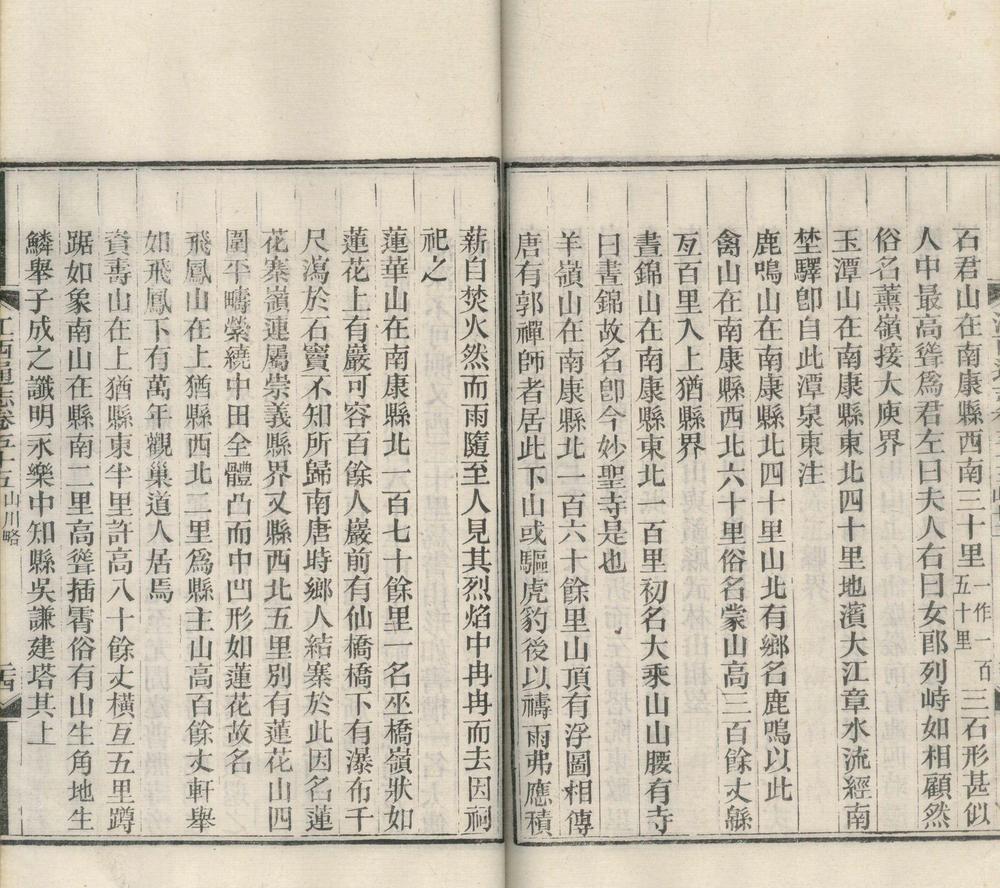 石君山在南康縣西南三十里一作一百五十里三石形甚似
人中最高聳爲君左曰夫人右曰女郎列峙如相顧然
俗名薰嶺接大庾界
玉潭山在南康縣東北四十里地濱大江章水流經南
埜驛卽自此潭泉東注
鹿鳴山在南康縣北四十里山北有鄉名鹿鳴以此
禽山在南康縣西北六十里俗名蒙山高三百餘丈緜
亙百里入上猶縣界
晝錦山在南康縣東北一百里初名大乘山山腰有寺
曰晝錦故名卽今妙聖寺是也
羊嶺山在南康縣北一百六十餘里山頂有浮圖相傳
唐有郭禪師者居此下山或驅虎豹後以禱雨弗應積
薪自焚火然而雨隨至人見其烈焰中冉冉而去因祠
祀之
蓮華山在南康縣北一百七十餘里一名巫橋嶺狀如
蓮花上有巖可容百餘人巖前有仙橋橋下有瀑布千
尺瀉於石竇不知所歸南唐時鄉人結寨於此因名蓮
花寨嶺連屬崇義縣界又縣西北五里別有蓮花山四
圍平疇縈繞中田全體凸而中凹形如蓮花故名
飛鳳山在上猶縣西北二里爲縣主山高百餘丈軒舉
如飛鳳下有萬年觀巢道人居焉
資壽山在上猶縣東半里許高八十餘丈橫亙五里蹲
踞如象南山在縣南二里高聳插霄俗有山生角地生
鱗舉子成之讖明永樂中知縣吳謙建塔其上
江西通志卷五十五 山川略 二西